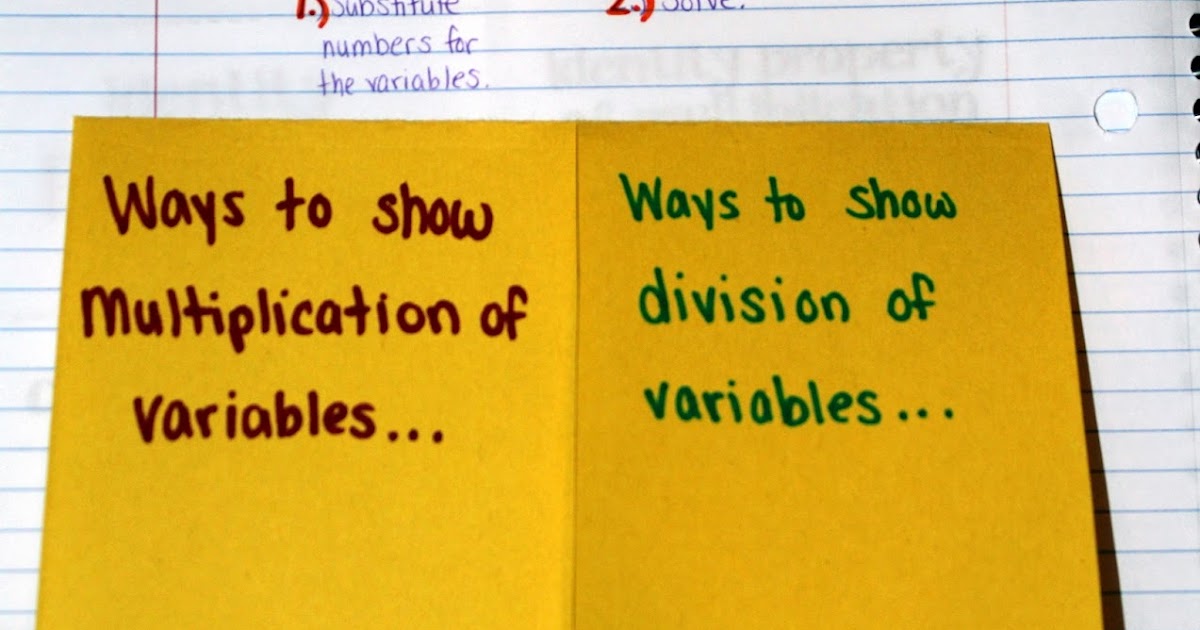 1.) Substitute
numbers for
the variables.
2.) Solve.
Identity property
of multiplication
Ways to show
Multiplication of
variables...
Ways to show
division of
variables...